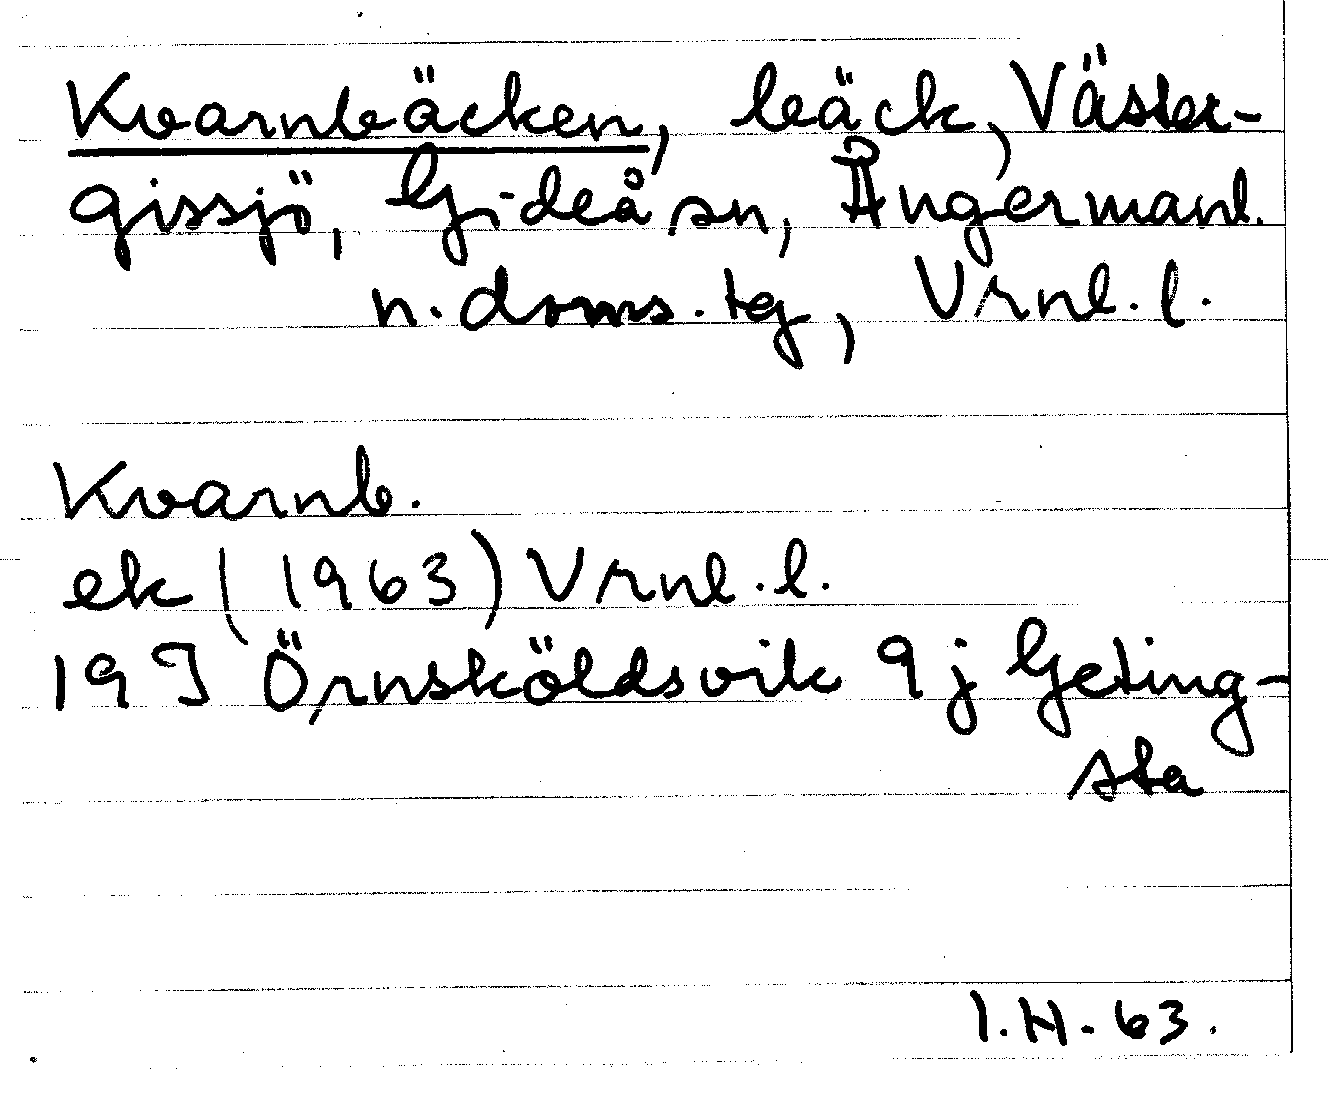 Kvarnbäcken, bäck, Väster-
gissjö, Gideå sn, Ångermanl.
n. doms. tg, Vrnl. l.
Kvarnb.
ek (1963) Vrnl. l.
19 J Örnsköldsvik 9 j Geting-
sta
I. H. 63.